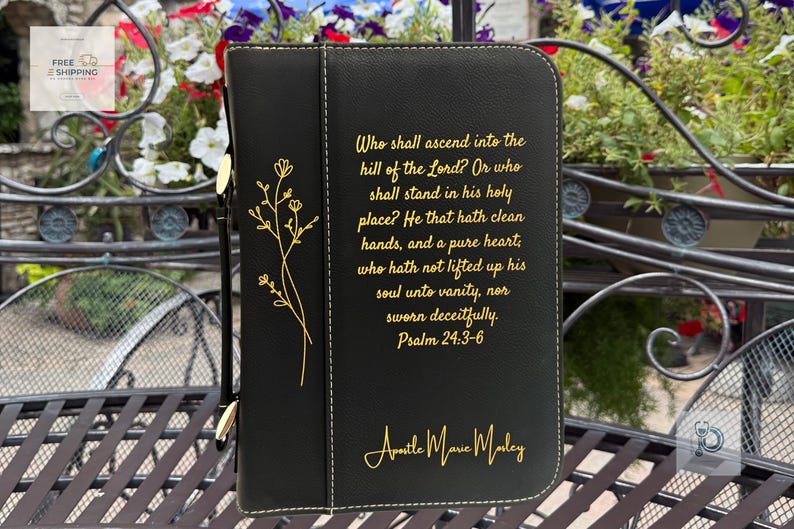 FREE
SHIPPING
Who shall ascend into the
hill of the Lord? Or who
shall stand in his holy
place? He that hath clean
hands, and a pure heart;
who hath not lifted up his
soul unto vanity, nor
sworn deceitfully.
Psalm 24:3-6
Apostle Marie Mosley